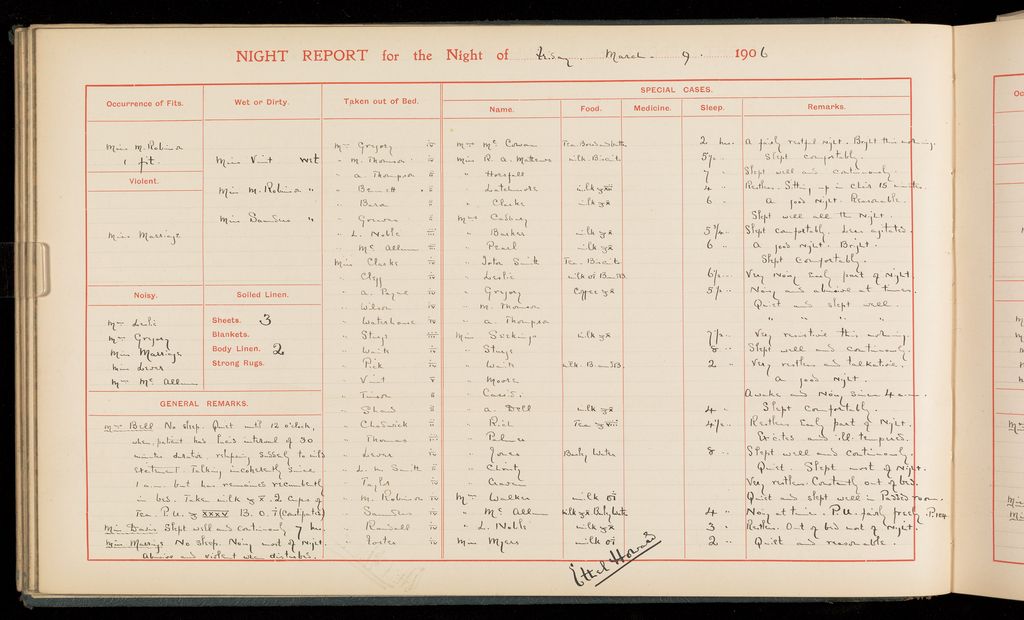 NIGHT REPORT for the Night of Friday March 9 1906
Occurrence of Fits.
Miss M. Robinson
1 fit.
Violent.
Miss Marriage
Noisy.
Mrs Leslie
Mrs Gregory
Miss Marriage
Miss Lewis
Mrs Mc Allum
Wet or Dirty.
Miss Vint wet
Miss M. Robinson "
Miss Saunders "
Soiled Linen.
Sheets. 3
Blankets.
Body Linen. 2
Strong Rugs.
GENERAL REMARKS.
Mrs Bell No sleep. Quiet until 12 o'clock,
when patient had
minutes duration,
statement. Talking incoherently since
1 a.m. but has remained
in bed. Taken milk 2 cups of
Tea. P.U. XXXV B.O.
Miss Davis Slept well and continuously 7 hrs.
Miss Marriage No sleep. Noisy most of night.
Abusive and violent when disturbed.
Taken out of Bed.
Mrs Gregory iv
" M. Thomson
" A. Thompson ii
" Bennett ii
" Bara ii
" Growns ii
" L. Noble iii
" Mc Allum iii
Miss Clarke iv
" Clegg iv
" A. Payne iv
" Wilson iv
" Waterhouse iv
" Sturge iii
" Waite iv
" Pick iv
" Vint v
" Shand ii
" Chadwick ii
" Thomas
" Lewis ii
" L. M. Smith ii
" Taylor iv
" M. Robinson iv
" Saunders iv
" Randell iv
" Foster iv
SPECIAL CASES.
Name. Food. Medicine. Sleep. Remarks.
Mrs Mc Cowan Tea. Bread and butter 2 hrs. A fairly restful night. Bright this morning.
Miss R. A. Mathews milk. Biscuits 5½ " Slept comfortably.
" Horsfall 7 " Slept well and continuously.
" Latchmore milk 4 " Restless. Sitting up in chair 15 minutes.
" Clarke milk 6 " A good night. Reasonable.
Mrs Cadbury Slept well all the night.
" Barker milk Slept comfortably. Less agitated.
" Pearl milk 6 " A good night. Bright.
" Smith Tea. Biscuits Slept comfortably.
" Leslie milk Very noisy early part of night
" Gregory Coffee Noisy and abusive at times.
" M. Thomson Quiet and slept well.
" A. Thompson " " " "
Miss Seekings milk 7½ " Very this morning.
" Sturge 8 " Slept well and continuously.
" Waite milk. 2 " Very restless and talkative.
" Moore A good night.
" Awake and noisy since 4 a.m.
" A. Dell milk 4 " Slept comfortably.
" Rich Tea Restless early part of night.
" Palmer Excited and ill-tempered.
" Jones Barley Water 8 " Slept well and continuously.
" Christy Quiet. Slept most of night.
" Craven Very restless. Constantly out of bed.
Mrs Walker milk Quiet and slept well in Padded room.
" Mc Allum milk Barley Water 4 " Noisy at times. P.U. fairly freely.
" L. Noble milk 3 " Restless. Out of bed most of night.
Miss Myers milk 2 " Quiet and reasonable.
Ethel Howard